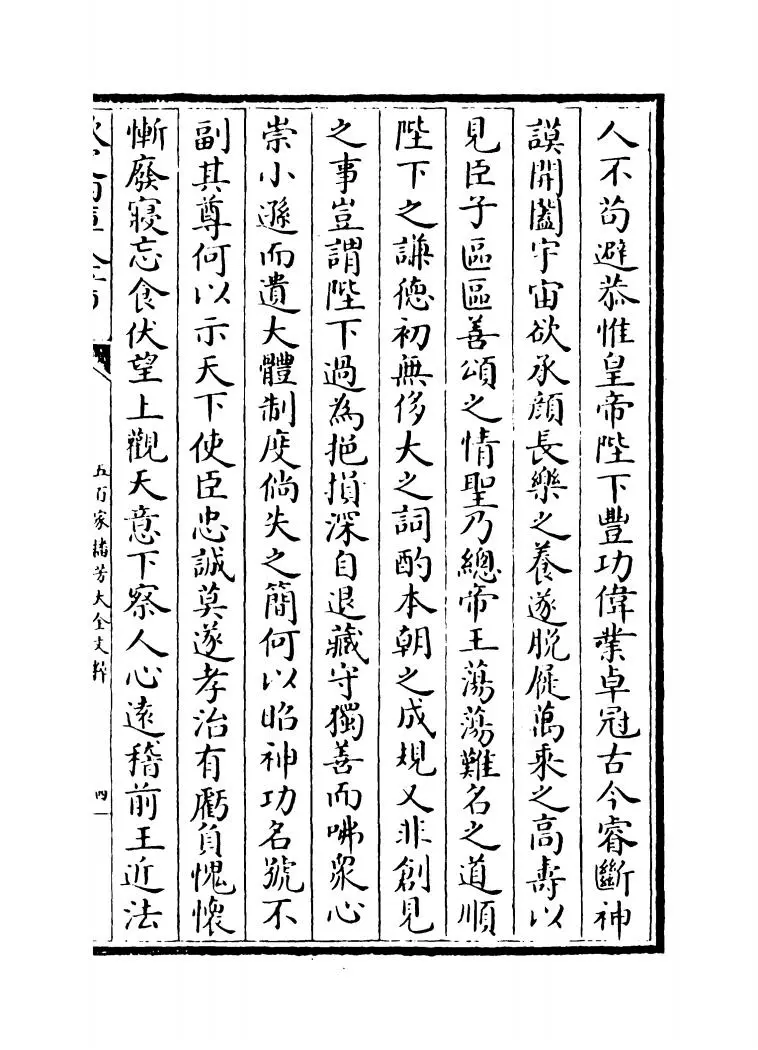 人不苟避恭惟皇帝陛下豐功偉業卓冠古今睿斷神
謨開闔宇宙欲承顔長樂之養遂脱屣萬乘之高壽以
見臣子區區善頌之情聖乃總帝王蕩蕩難名之道順
陛下之謙德初無侈大之詞酌本朝之成規又非創見
之事豈謂陛下過為挹損深自退藏守獨善而咈衆心
崇小遜而遺大體制度倘失之簡何以昭神功名號不
副其尊何以示天下使臣忠誠莫遂孝治有虧負愧懷
慚廢寢忘食伏望上觀天意下察人心遠稽前王近法
五百家播芳大全文粹
四